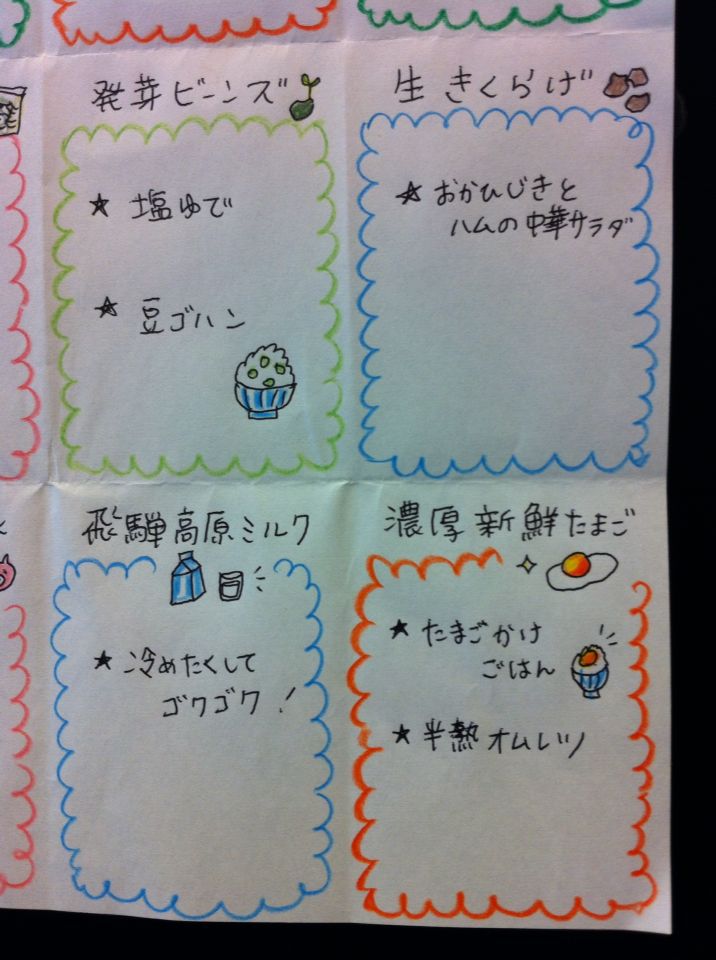 発芽ビーンズ
★ 塩ゆで
★ 豆ゴハン
生きくらげ
★ おかひじきと
ハムの中華サラダ
飛騨高原ミルク
★ 冷めたくして
ゴクゴク!
濃厚新鮮たまご
★ たまごかけ
ごはん
★ 半熱オムレツ